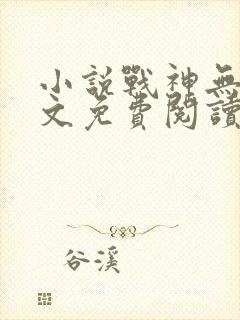 小説戰神無
文免費閱讀
谷溪